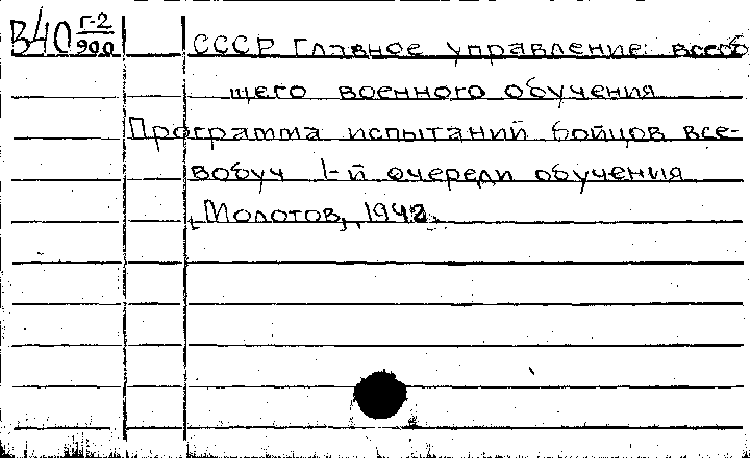 В40 Г-2/900 СССР Главное управление всеоб
щего военного обучения
Программа испытаний бойцов все-
вобуч 1-й очереди обучения
[Молотов], 1942.